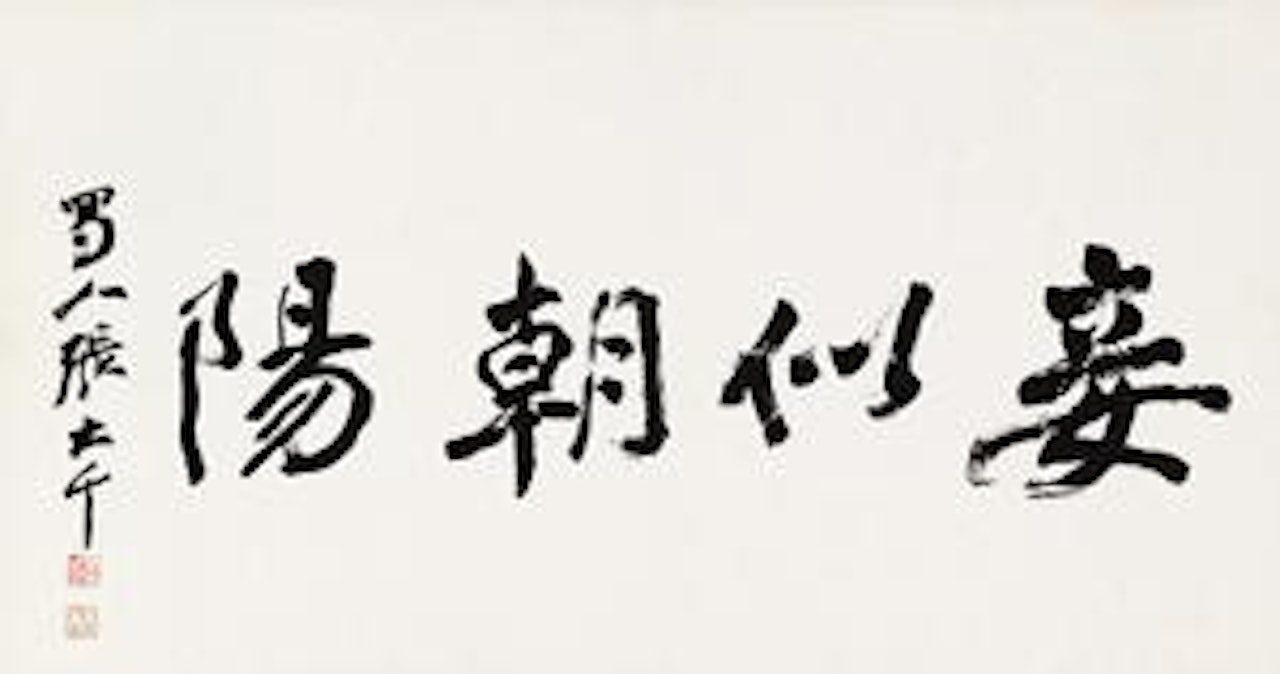 妾似朝陽
蜀人張大千